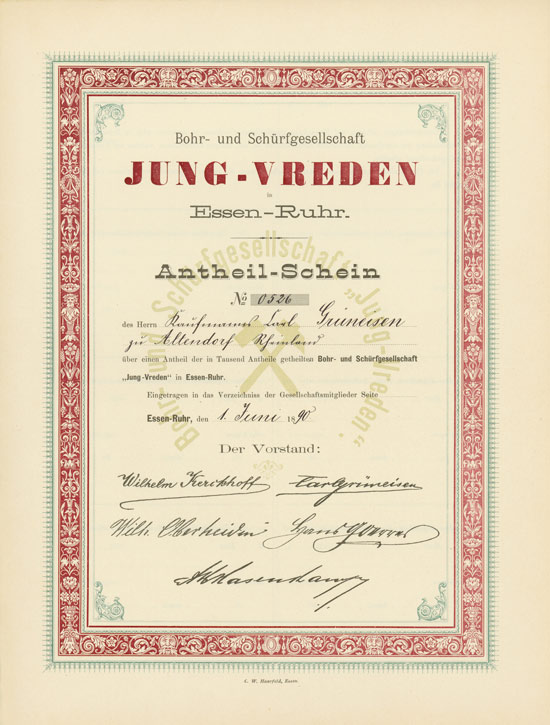 Bohr- und Schürfgesellschaft
JUNG-VREDEN
in
Essen-Ruhr.
Bohr- und Schürfgesellschaft „Jung-Vreden".
Antheil-Schein
No 0526
des Herrn Kaufmannes Carl Grüneisen
zu Altendorf Rheinland
über einen Antheil der in Tausend Antheile getheilten Bohr- und Schürfgesellschaft
„Jung-Vreden" in Essen-Ruhr.
Eingetragen in das Verzeichniss der Gesellschaftsmitglieder Seite
Essen-Ruhr, den 1. Juni 1890
Der Vorstand:
Wilhelm Kerckhoff Carl Grüneisen
Wilh. Oberheiden Hans Goerres
G. W. Haarfeld, Essen